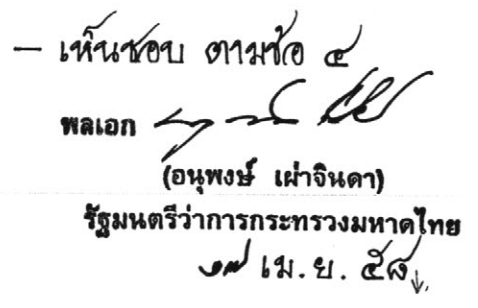 – เห็นชอบ ตามข้อ ๔
พลเอก
(อนุพงษ์ เผ่าจินดา)
รัฐมนตรีว่าการกระทรวงมหาดไทย
๑๗ เม.ย. ๕๘